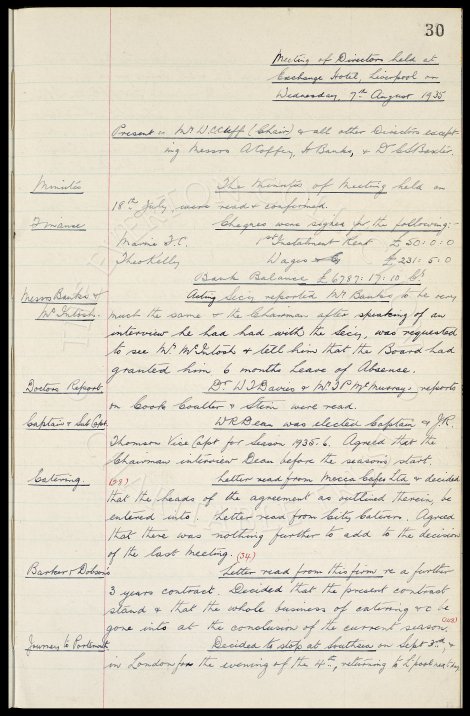 30
Meeting of Directors held at
Exchange Hotel, Liverpool on
Wednesday, 7th August 1935
Present :- Mr W.C. Cuff (Chair) & all other Directors except-
ing Messrs A Coffey, H Banks, & Dr C S Baxter.
Minutes The Minutes of Meeting held on
18th July, were read & confirmed.
Finance Cheques were signed for the following:-
Marine F.C. 1st Instalment Rent £50:0:0
Theo Kelly Wages £231:5:0
Bank Balance £6787:17:10 Cr
Messrs Banks & Acting Secy reported Mr Banks to be very
McIntosh. much the same & the Chairman after speaking of an
interview he had had with the Secy, was requested
to see Mr McIntosh & tell him that the Board had
granted him 6 months Leave of Absence.
Doctors Report Dr W J Davies & Mr J P McMurray's reports
on Cook Coulter & Stein were read.
Captain & Sub Capt. W R Dean was elected Captain & J.R.
Thomson Vice Capt for Season 1935-6. Agreed that the
Chairman interview Dean before the seasons start.
Catering (33) Letter read from Mecca Cafes Ltd & decided
that the heads of the agreement as outlined therein be
entered into. Letter read from City Caterers. Agreed
that there was nothing further to add to the decision
of the last meeting. (34)
Barker & Dobsons Letter read from this firm re a further
3 years contract. Decided that the present contract
stand & that the whole business of catering &c be
gone into at the conclusion of the current season.
Journey to Portsmouth Decided to stop at Southsea on Sept 3rd, &
in London for the evening of the 4th, returning to L'pool next day